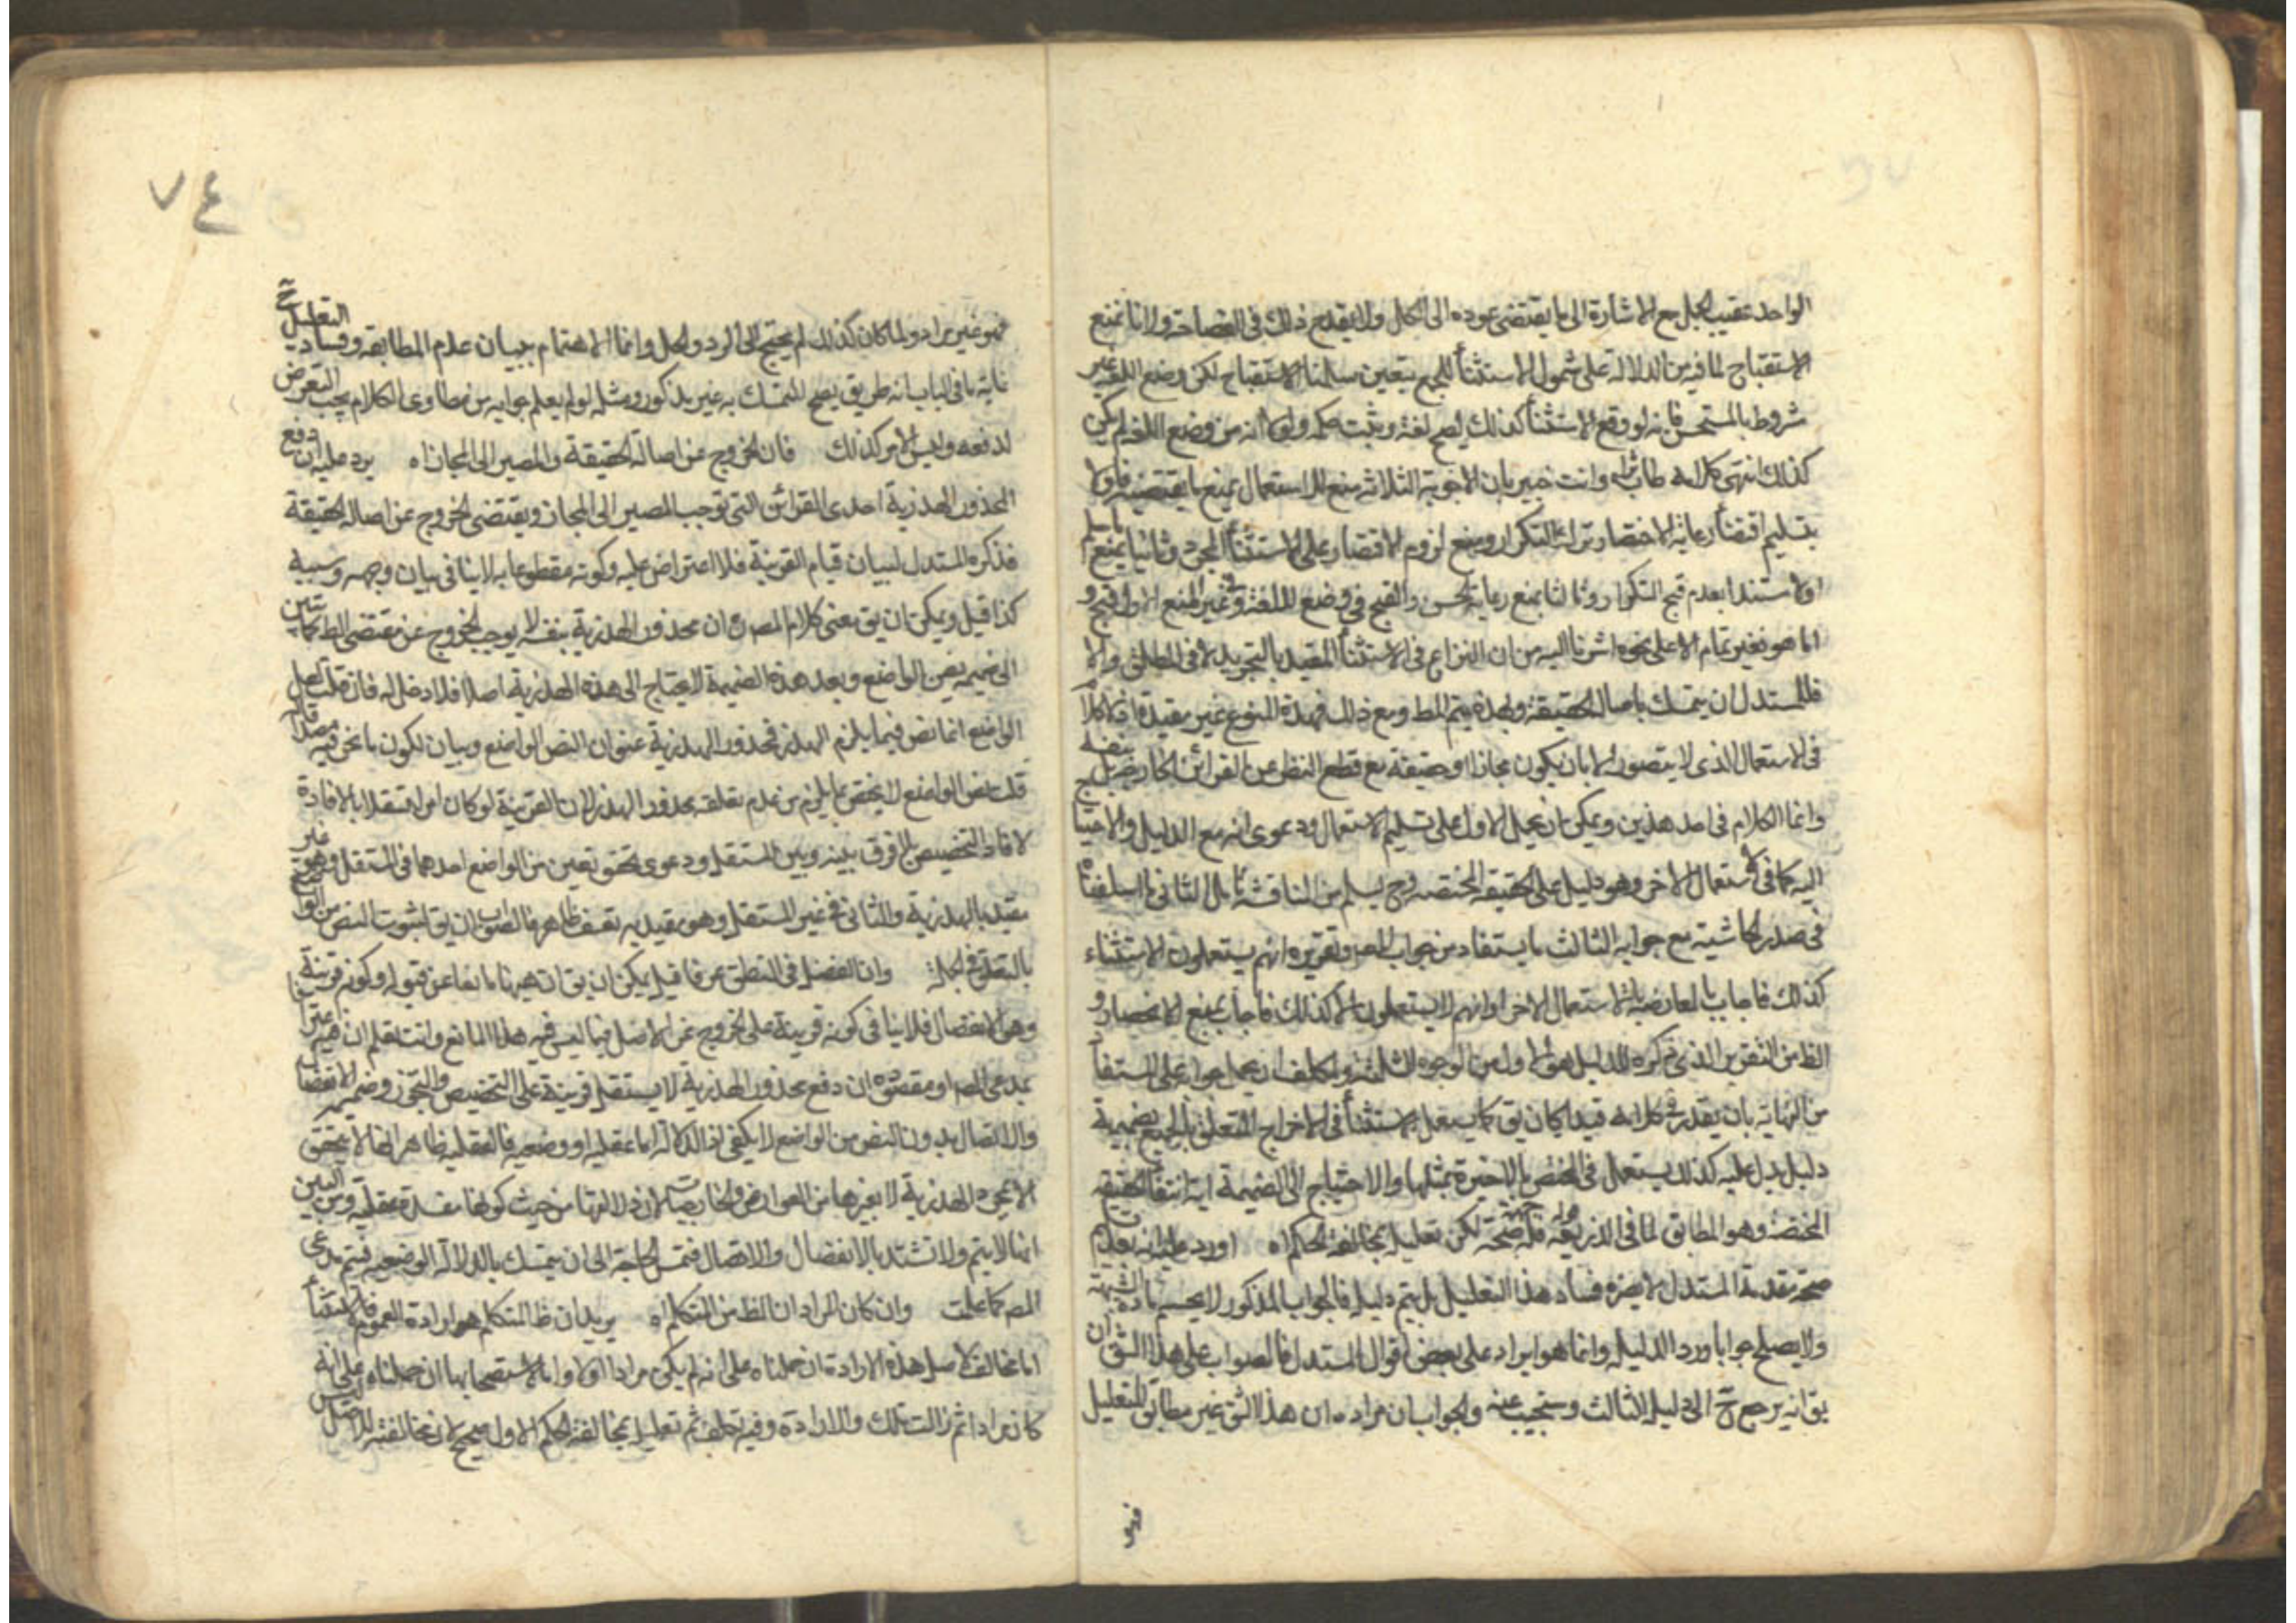 الواحد عقيب الجمل مع الاشارة الى ما يقتضى عوده الى الكل ولا يقدح ذلك فى الفصاحة وثانيا نمنع
الاستقباح لما فيه من الدلالة على شمول الاستثنأ للجميع بتعين سلمنا الاستقباح لكن وضع اللغة غير
شروط بالمستحسن فانه لو وقع الاستثنأ كذلك يصح لغة ويثبت حكمه ولولا انه من وضع اللغة لم يكن
كذلك انتهى كلامه طاب ثراه وانت خبير بان الاجوبة الثلاثة منع للاستعمال يمنع ما يقتضيه فاولا
بتسليم اقتضأ رعاية الاختصار ترك التكرار ويمنع لزوم الاقتصار على الاستثنأ المجرد وثانيا يمنع ما سلم
اولا مستندا بعدم قبح التكرار وثالثا يمنع رعاية الحسن والقبح فى وضع اللغة وفى غير المنع الاول
اما هو فغير تمام الا على نحو ما اشرنا اليه من ان النزاع فى الاستثنأ المقيد بالتجريد لا فى المطلق والا
فللمستدل ان يتمسك باصالة الحقيقة وبهذه يتم المط ومع ذلك فهذه المنوع غير مفيدة اذ لا كلام
فى الاستعمال الذى لا يتصور الا بان يكون مجازا او حقيقة مع قطع النظر عن القرائن الخارجية
وانما الكلام فى احد هذين ويمكن ان يحمل الاول على تسليم الاستعمال ودعوى انه مع الدليل والاحتياج
اليه كما فى الاستعمال الاخر وهو دليل على الحقيقة المختصة وح يسلم من المناقشة بل الثانى ما اسلفناه
فى صدر الحاشية مع جوابه الثالث ما يستفاد من جواب المص وتقريره انهم يستعملون الاستثناء
كذلك فاجاب بالمعارضة بالاستعمال الاخر او انهم لا يستعملون الا كذلك فاجاب بمنع الانحصار و
الظ من التقرير الذى ذكره للدليل هو الاول من الوجوه الثلثة ولا تكلف ان يحمل جوابه على المستفاد
من النهاية بان يقدر فى كلامه قيد كان يق كما يستعمل الاستثنأ فى الاخراج المتعلق بالجميع بضميمة
دليل يدل عليه كذلك يستعمل فى المختص بالاخيرة بمثلها والاحتياج الى الضميمة اية انتفأ الحقيقة
المختصة وهو المطابق لما فى الذريعة قوله فله صحة لكن تعليله بمخالفة الحكم اه اورد عليه انه بعد
صحة مقدمة المستدل لا يضره فساد هذا التعليل بل يتم دليله فالجواب المذكور لا يحسم مادة الشبهة
ولا يصلح جوابا وردا لدليله وانما هو ايراد على بعض اقوال المستدل فالصواب على هذا الشق ان
يق انه يرجع ح الى دليله الثالث وستجيب عنه والجواب ان مراده ان هذا الشق غير مطابق للتعليل
فهو غير مراد ولما كان كذلك لم يحتج الى الرد والحل وانما الاهتمام ببيان عدم المطابقة وفساد التعليل ح
غاية ما فى الباب انه طريق يصح للتمسك به غير مذكور ومثله لو لم يعلم جوابه من مطاوى الكلام يجب التعرض
لدفعه وليس الامر كذلك فان الخروج عن اصالة الحقيقة والمصير الى المجاز اه يرد عليه ان دفع
المحذور الهذرية احدى القرائن التى توجب المصير الى المجاز ويقتضى الخروج عن اصالة الحقيقة
فذكره المستدل لبيان قيام القرينة فلا اعتراض عليه وكونه مقطوعا به لا ينافى بيان وجهه وسببه
كذا قيل ويمكن ان يق معنى كلام المص ره ان محذور الهذرية بنفسه لا يوجب الخروج عن مقتضى الظ
الى ضميمه نص الواضع وبعد هذه الضميمة لا يحتاج الى هذه الهذرية اصلا فلا دخل له فان قلت لعل
الواضع انما نص فيما يلزم الهذر فمحذور الهذرية عنوان النص الواضع وبيان لكون ما نحن فيه
قلت نص الواضع لا يختص بما يلزم من عدم تعلقه محذور الهذر لان القرينة لو كان امرا مستقلا بالافادة
لافاد التخصيص والفرق بينه وبين المستقل ودعوى تحقق نصين من الواضع احدهما فى المستقل وهو غير
مقيد بالهذرية والثانى فى غير المستقل وهو مقيد به تعسف ظاهر فالصواب ان يق بثبوت النص من الواضع
وان الفصل فى النطق اه فيما قيل يمكن ان يق ان هيهنا مانعا عن قبوله وكونه قرينة
وهو الانفصال فلا ينافى كونه قرينة على الخروج عن الاصل فيما ليس فيه هذا المانع وانت تعلم ان هذا
بمدعى المص اذ مقصوده ان دفع محذور الهذرية لا يستقل قرينة على التخصيص والتجوز وضم الانفصال
والاتصال بدون النص من الواضع لا يكفى اذ الدلالة اما عقلية او وضعية فالعقلية ظاهر انها لا يتحقق
الا نحو هذه الهذرية لا بغيرها من العوارض والخارجيات لان دلالتها من حيث كونها مقدمة عقلية ومن البين
انها لا يتم ولا تشتد بالانفصال والاتصال فتمس الحاجة الى ان يتمسك بالدلالة الوضعية فيتم مدعى
المص كما علمت وان كان المراد ان الظ من المتكلم اه يريد ان ظ المتكلم هو ارادة العموم فالاستثنأ
اما مخالف لاصل هذه الارادة ان حملناه على انه لم يكن مرادا اولا واما لاستصحابها ان حملناه على انه
كان مرادا ثم زالت تلك الارادة وفيه تكلف ثم تعليله بمخالفة الحكم الاول صحيح لان مخالفته للاصل